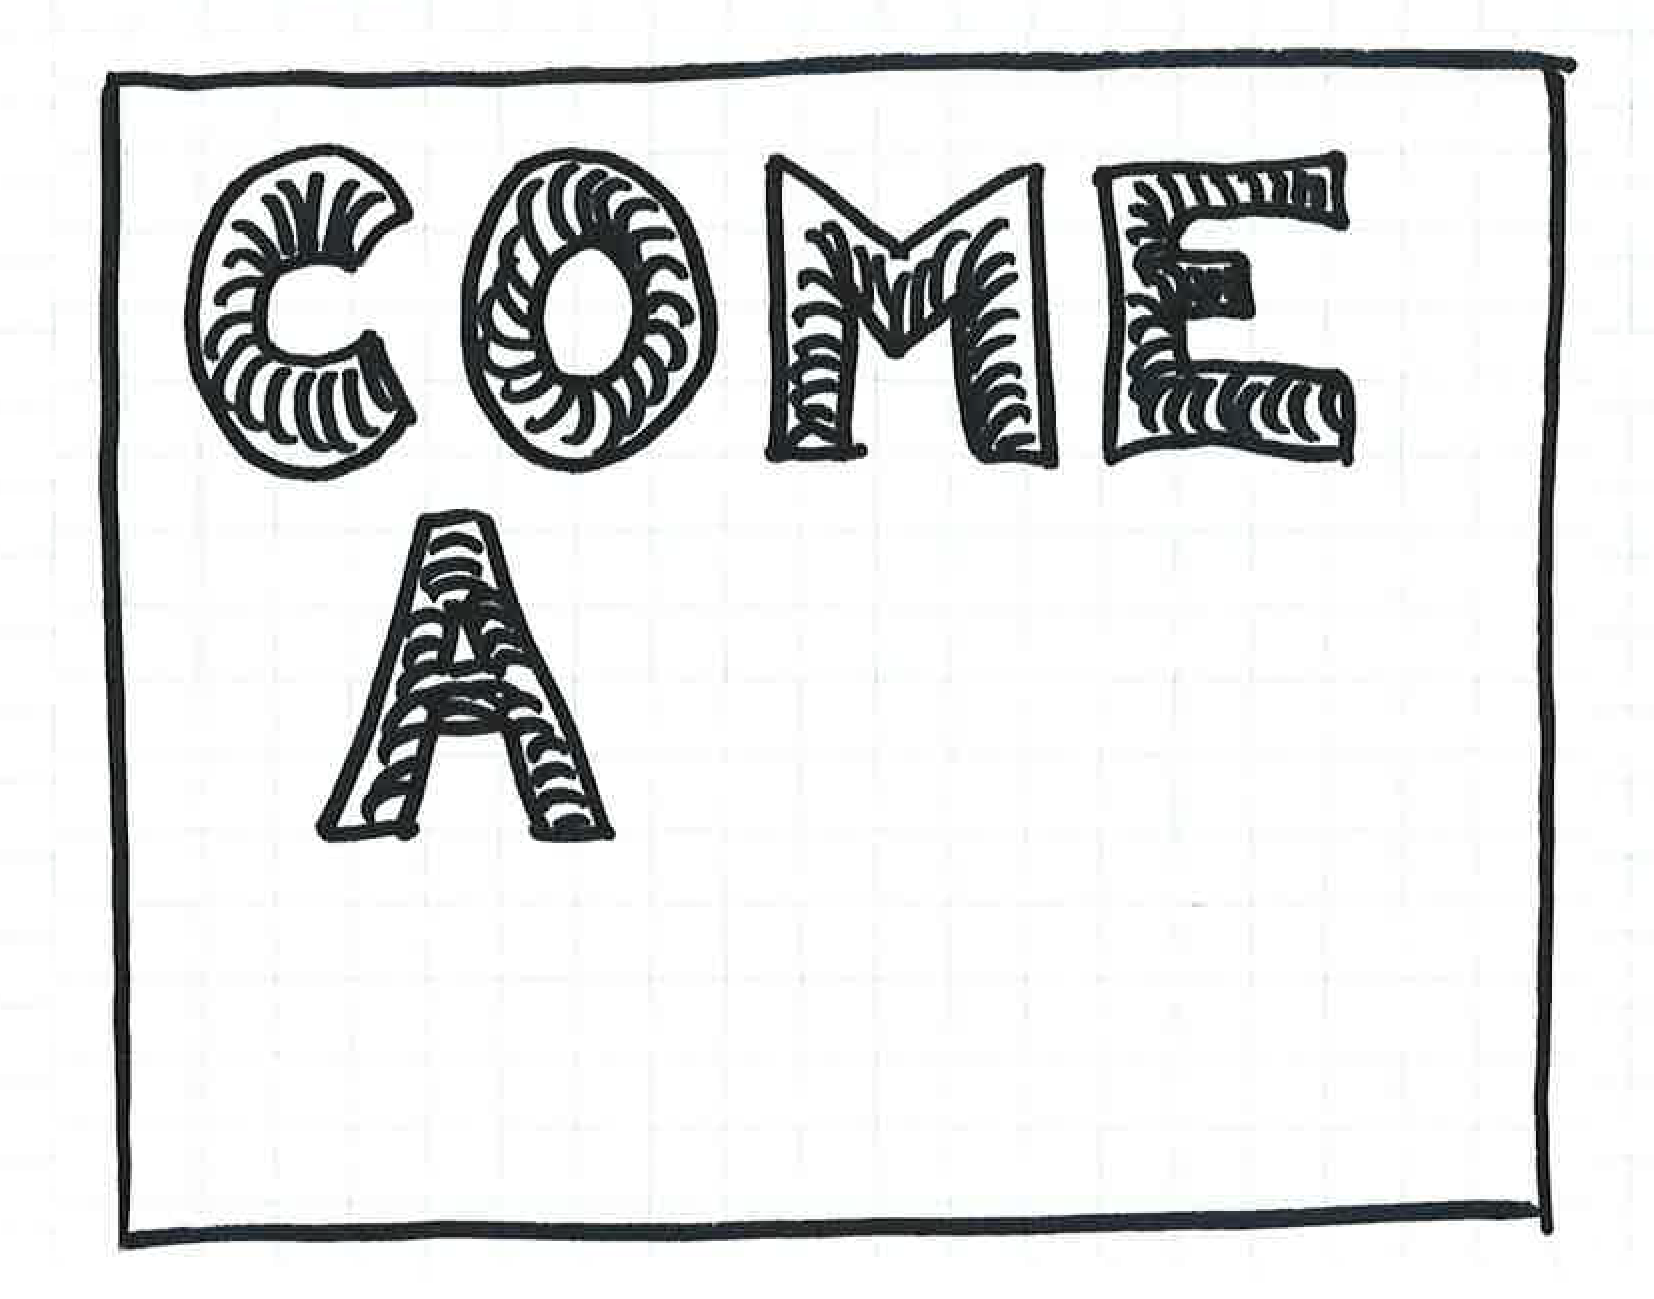 COME
A